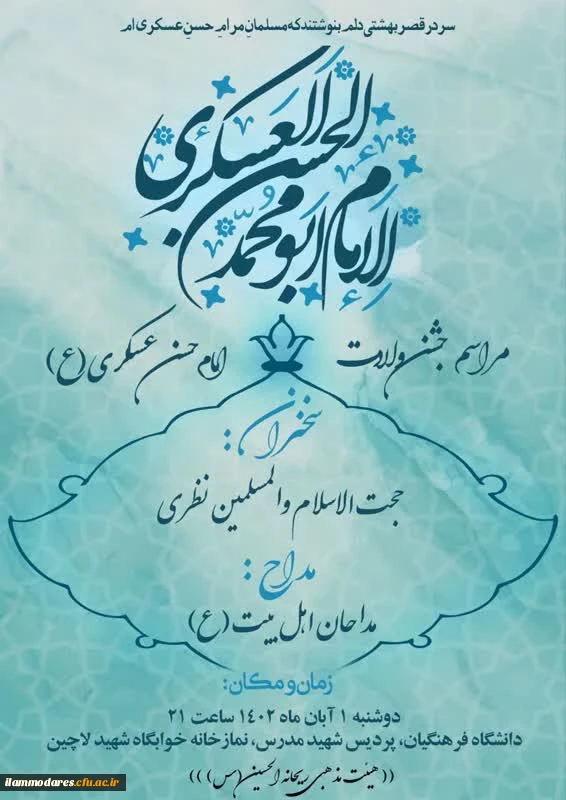 سر در قصر بهشتی دلم بنوشتند که مسلمانِ مرامِ حسنِ عسکری ام
الإمام ابو محمّد
الحسن العسکري
مراسم جشن ولادت امام حسن عسکری (ع)
سخنران :
حجت الاسلام والمسلمین نظری
مداح :
مداحان اهل بیت (ع)
زمان و مکان:
دوشنبه ۱ آبان ماه ۱۴۰۲ ساعت ۲۱
دانشگاه فرهنگیان، پردیس شهید مدرس، نمازخانه خوابگاه شهید لاچین
((هیئت مذهبی ریحانه الحسین(س)))
ilammodares.cfu.ac.ir